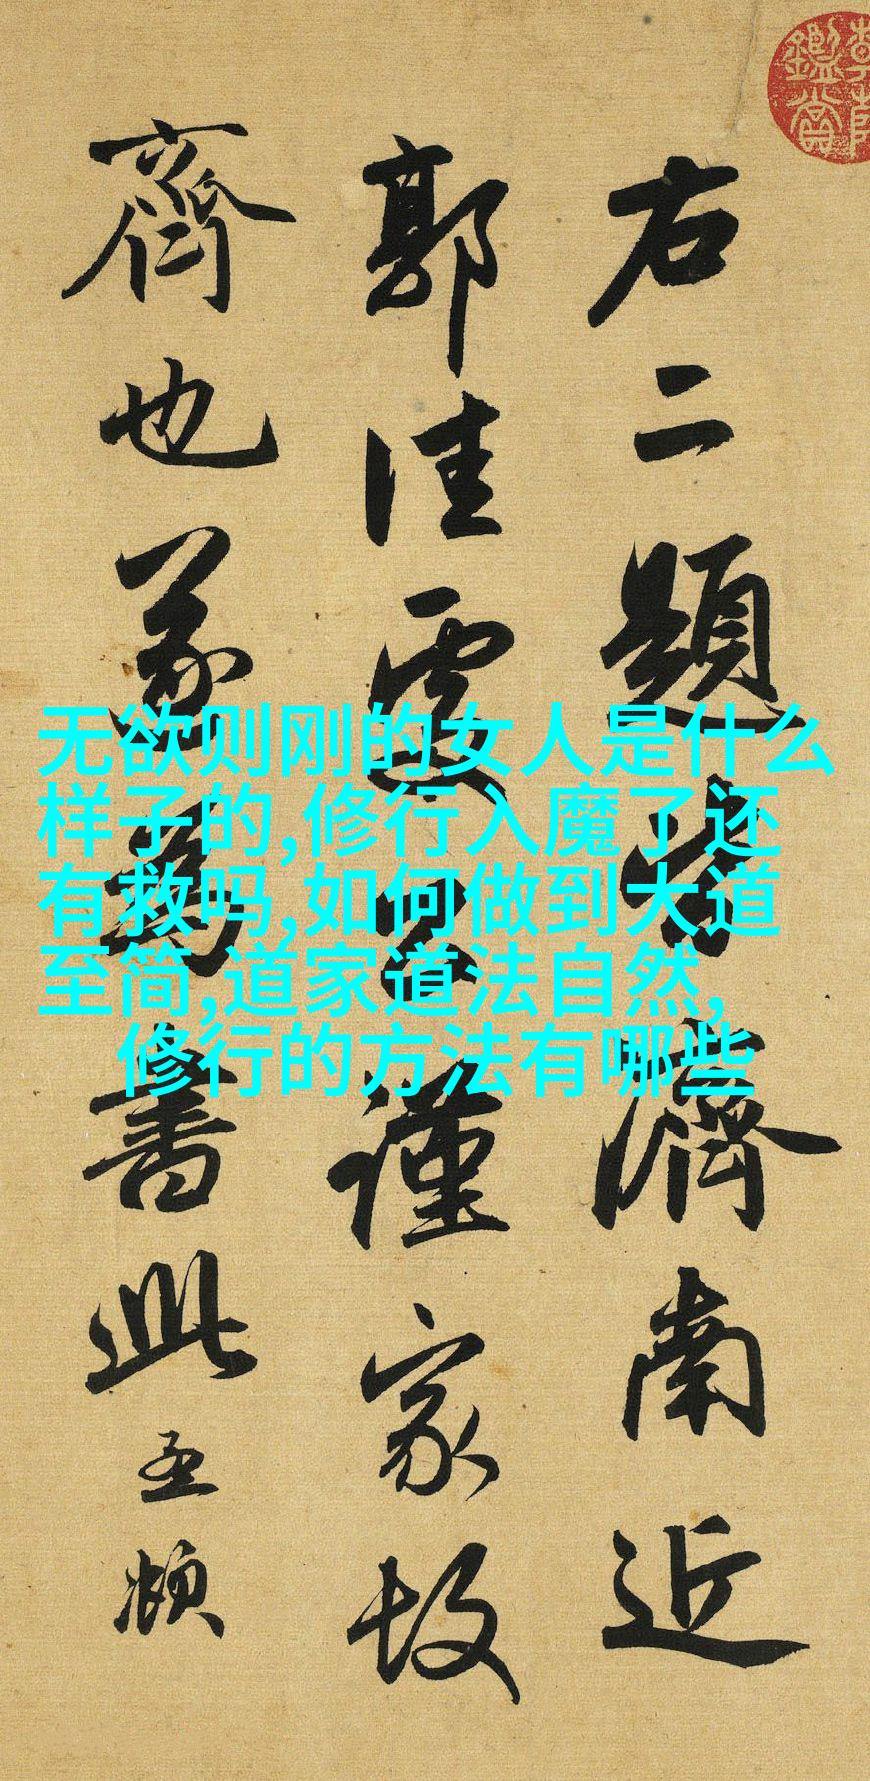 鑑賞
右二題皆濟南近
郭佳處公謹家故
齊也遂為書此孟頫
无欲则刚的女人是什么
样子的,修行入魔了还
有救吗,如何做到大道
至简,道家道法自然,
修行的方法有哪些